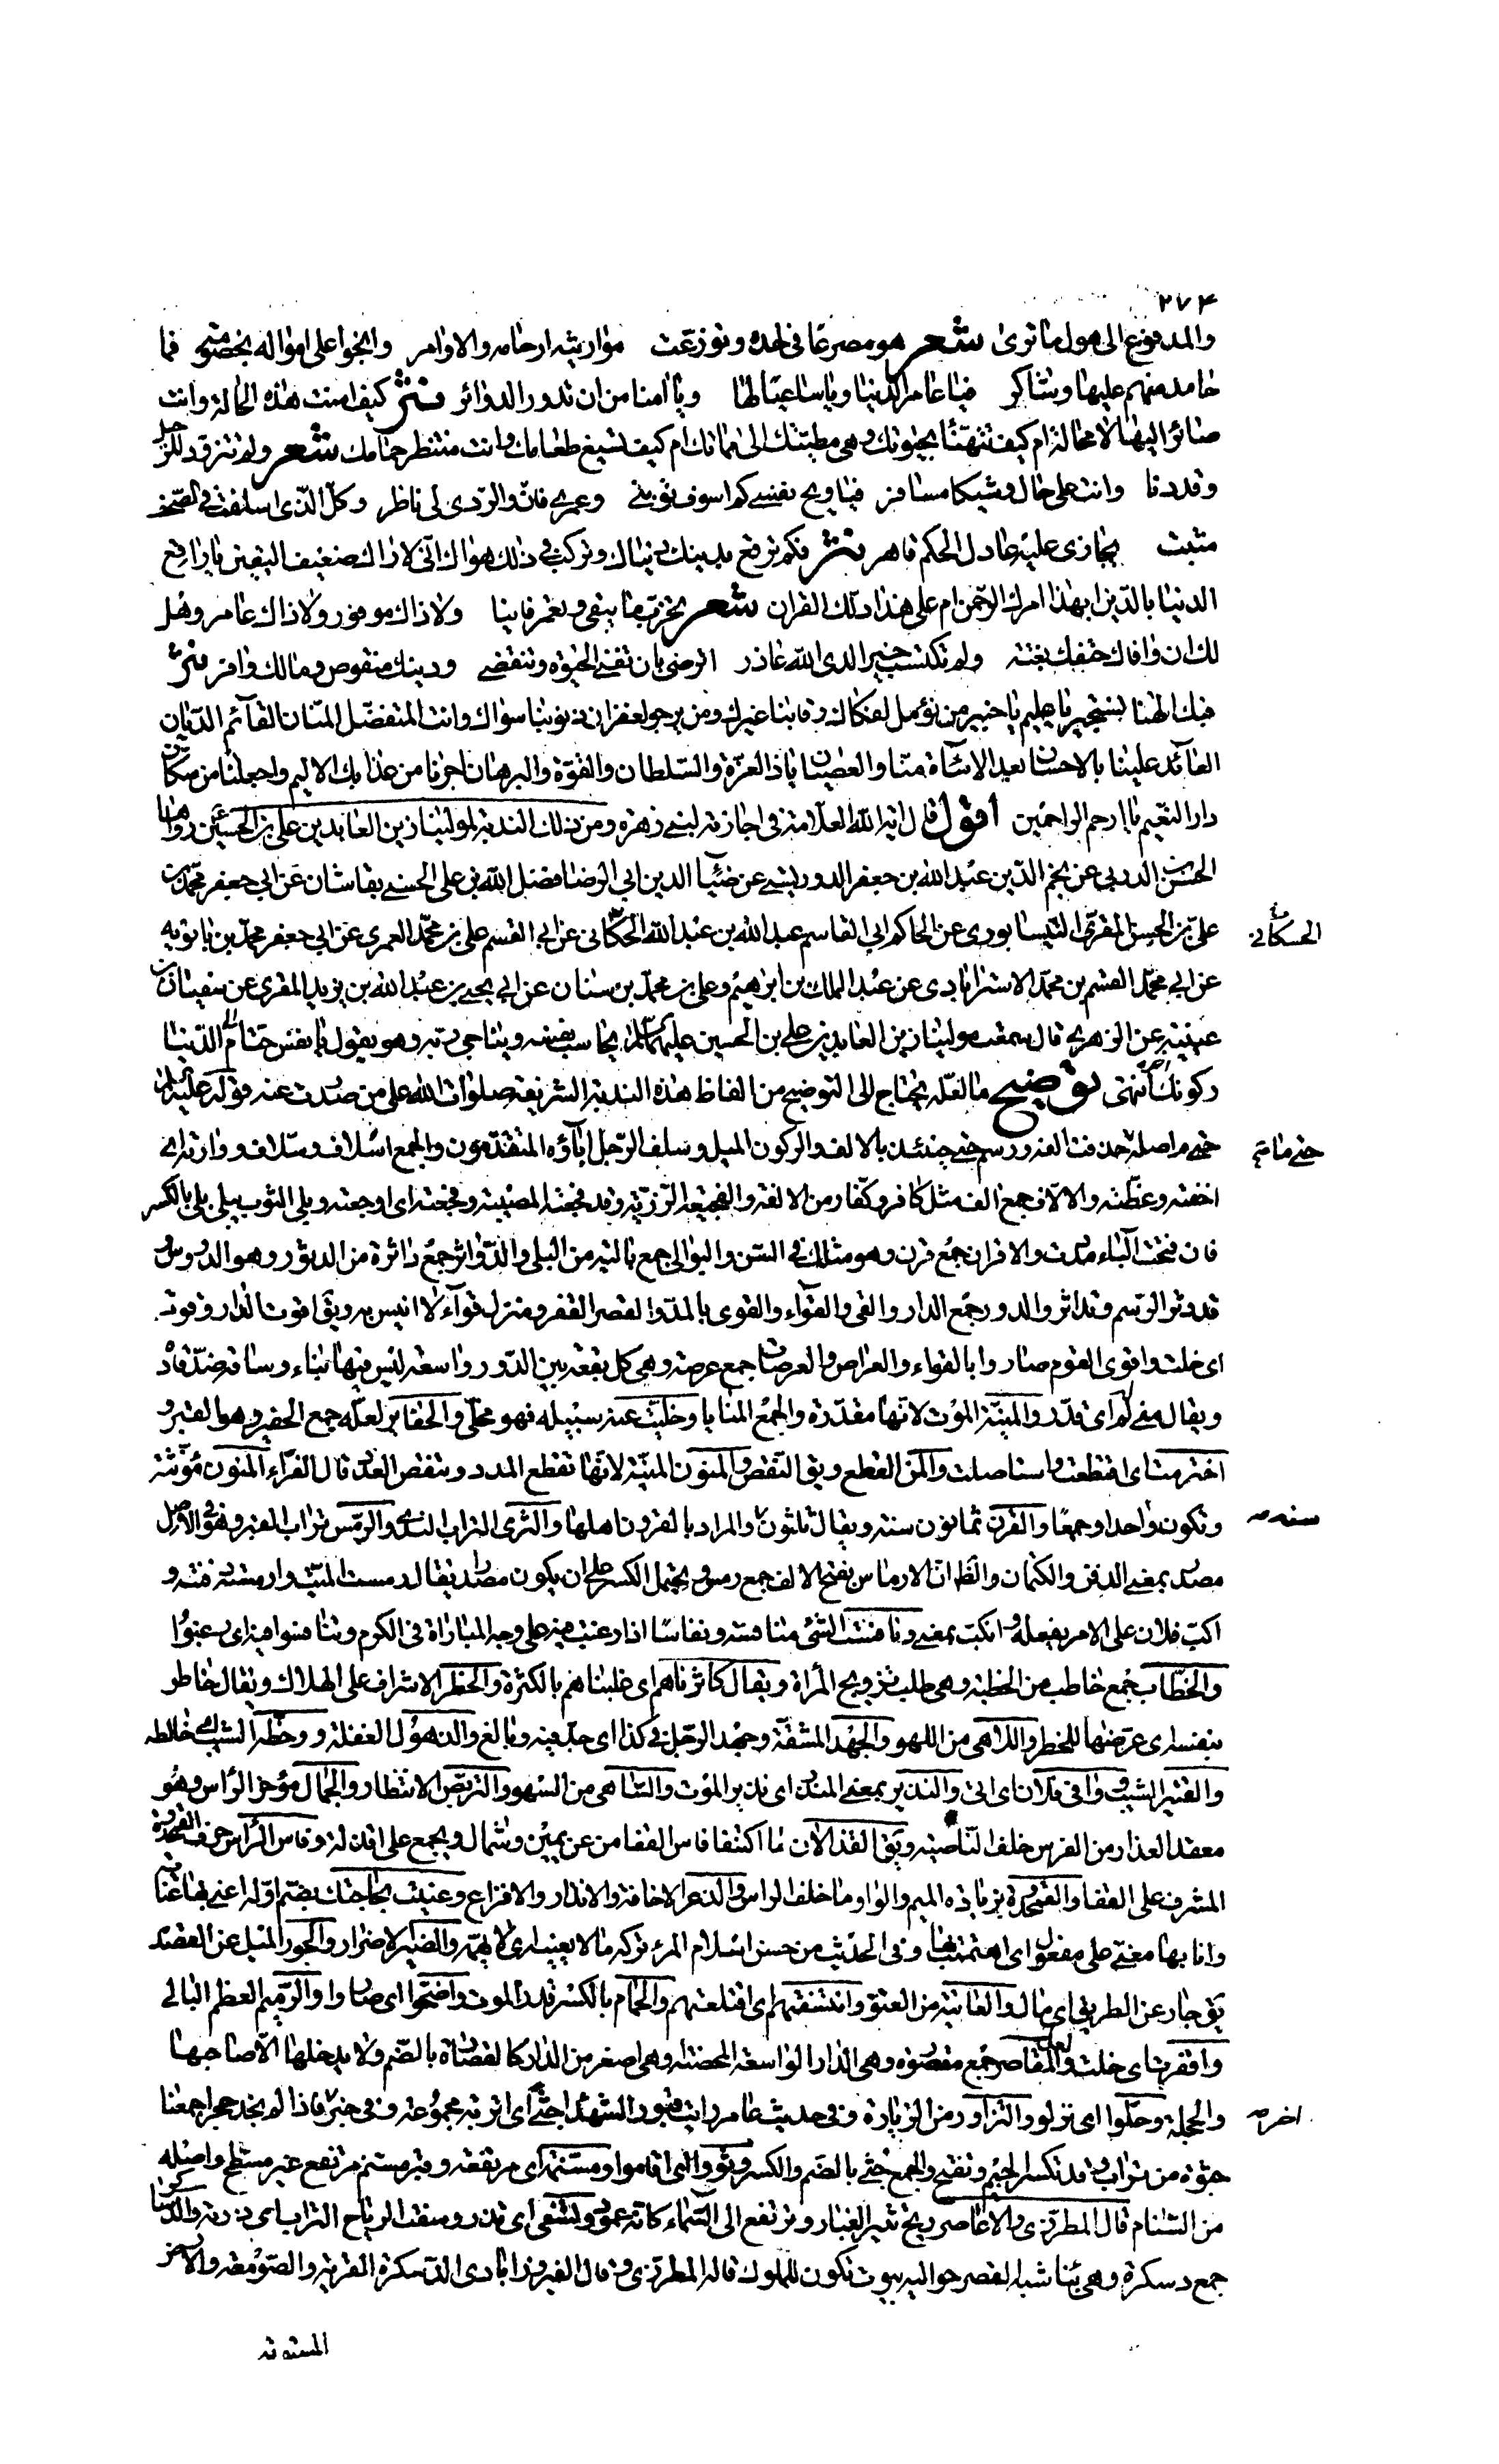 ٢٧٤
والمدفوع الى هول ما ترى شعر هو مصرعا فى لحده وتوزعت مواريثه ارحامه والاواصر وانحوا على امواله بخصومة فما
حامد منهم عليها وشاكر فيا عامر الدنيا ويا ساعيا لها ويا امنا من ان تدور الدوائر نثر كيف امنت هذه الحالة وانت
صائر اليها لا محالة ام كيف تتهنا بحيوتك وهى مطيتك الى مماتك ام كيف تسيغ طعامك وانت منتظر حمامك شعر ولم تتزود للرحيل
وقد دنا وانت على حال وشيكا مسافر فيا ويح نفسى كم اسوف توبتى وعمرى فان والردى لى ناظر وكل الذى اسلفت فى الصحف
مثبت يجازى عليه عادل الحكم قاهر نثر فكم ترقع بدينك دنياك وتركب فى ذلك هواك انى لاراك ضعيف اليقين يا راقع
الدنيا بالدين ابهذا امرك الرحمن ام على هذا دلك القران شعر تخرب ما يبقى وتعمر فانيا ولا ذاك موفور ولا ذاك عامر وهل
لك ان وافاك حتفك بغتة ولم تكتسب خيرا لدى الله عاذر اترضى بان تفنى الحيوة وتنقضى ودينك منقوص ومالك وافر نثر
فبك الهنا نستجير يا عليم يا خبير من نؤمل لفكاك رقابنا غيرك ومن نرجو لغفران ذنوبنا سواك وانت المتفضل المنان القائم الديان
العائد علينا بالاحسان بعد الاساءة منا والعصيان يا ذا العزة والسلطان والقوة والبرهان اجرنا من عذابك الاليم واجعلنا من سكان
دار النعيم يا ارحم الراحمين اقول قال اية الله العلامة فى اجازته لبنى زهرة ومن ذلك الندبة لمولينا زين العابدين على بن الحسين رواها
الحسن بن الدربى عن نجم الدين عبد الله بن جعفر الدوريستى عن ضياء الدين ابى الرضا فضل الله بن على الحسنى بقاشان عن ابى جعفر محمد بن
على بن الحسن المقرى النيسابورى عن الحاكم ابى القاسم عبد الله بن عبد الله الحكانى عن ابى القسم على بن محمد العمرى عن ابى جعفر محمد بن بابويه
الحسكانى
عن ابى محمد القسم بن محمد الاسترابادى عن عبد الملك بن ابرهيم وعلى بن محمد بن سنان عن ابى يحيى بن عبد الله بن يزيد المقرى عن سفيان بن
عيينة عن الزهرى قال سمعت مولينا زين العابدين على بن الحسين عليهما السلام يحاسب نفسه ويناجى ربه وهو يقول يا نفس حتام الى الدنيا
ركونك انتهى توضيح ما لعله يحتاج الى التوضيح من الفاظ هذه الندبة الشريفة صلوات الله على من صدرت عنه قوله عليه السلام
حتى م اصله حذفت الفه ورسم حتى حينئذ بالالف والركون الميل وسلف الرجل اباؤه المتقدمون والجمع اسلاف وسلاف ووارته اى
حتى ما ثم
اخفته وغطته والالاف جمع الف مثل كافر وكفار من الالفة والفجيعة الرزية وقد فجعته المصيبة وفجعته اى اوجعته وبلى الثوب يبلى بلى بالكسر
فان فتحت الباء مددت والاقران جمع قرن وهو مثلك فى السن والبوالى جمع بالية من البلى والدوائر جمع دائرة من الدثور وهو الدروس
قد دثر الرسم وتداثر والدور جمع الدار والقى والقواء والقوى بالمد والقصر القفر ومنزل قواء لا انيس به ويق اقوت الدار وقوت
اى خلت واقوى القوم صاروا بالقواء والعراص والعرصات جمع عرصة وهى كل بقعة بين الدور واسعة ليس فيها بناء وساقه ضد قاد
ويقال منى له اى قدر والمنية الموت لانها مقدرة والجمع المنايا وخليت عنه سبيله فهو مخلى والحفاير لعله جمع الحفيره وهو القبر و
اخترمت اى اقتطعت واستاصلت والمن القطع ويق النقص والمنون المنية لانها تقطع المدد وتنقص العدد قال الفراء المنون مؤنثة
وتكون واحدا وجمعا والقرن ثمانون سنة ويقال ثلثون والمراد بالقرون اهلها والثرى التراب الندى والرمس تراب القبر وهو فى الاصل
سنة صه
مصدر بمعنى الدفن والكتمان والظ ان الارماس بفتح الالف جمع رمس ويحتمل الكسر على ان يكون مصدرا يقال رمست الميت وارمسته دفنته و
اكب فلان على الامر يفعله وانكب بمعنى ونافست الشئ منافسة ونفاسا اذا رغبت فيه على وجه المباراة فى الكرم وتنافسوا فيه اى رغبوا
والخطاب جمع خاطب من الخطبة وهى طلب تزويج المراة ويقال كاثرناهم اى غلبناهم بالكثرة والخطر الاشراف على الهلاك ويقال خاطر
بنفسه اى عرضها للخطر واللاهى من اللهو والجهد المشقة وجهد الرجل فى كذا اى جد فيه وبالغ والذهول الغفلة ووخطه الشيب خالطه
والقتير الشيب ووافى فلان اى اتى والنذير بمعنى المنذر اى نذير الموت والساهى من السهو والتربص الانتظار والجمال مؤخر الراس وهو
معقد العذار من الفرس خلف الناصية ويق القذالان ما اكتنفا فاس القفا من عن يمين وشمال ويجمع على اقذلة وفاس الراس حرف القمحدوة
المشرف على القفا والقمحدوة بزيادة الميم والواو ما خلف الراس والذعر الاخافة والانذار والافزاع وعنيت بحاجتك بضم اوله اعنى بها عناية
وانا بها معنى على مفعول اى اهتممت بها وفى الحديث من حسن اسلام المرء تركه ما لا يعنيه اى لا يهمه والضير الاضرار والجور الميل عن القصد
يق جار عن الطريق اى مال والعانية من العنق وانتسفتهم اى اقتلعتهم والحمام بالكسر قدر الموت واضحوا اى صاروا والرميم العظم البالى
واقفرت اى خلت والمقاصر لعله جمع مقصورة وهى الدار الواسعة المحصنة وهى اصغر من الدار كالقصارة بالضم ولا يدخلها الا صاحبها
والحجلة وحلوا اى نزلوا والتزاور من الزيارة وفى حديث عامر رايت قبور الشهداء جثى اى اتربة مجموعة وفى خبر فاذا لم نجد حجرا جمعنا
اخر صه
جثوة من تراب وقد تكسر الجيم وتفتح والجمع جثى بالضم والكسر وثووا اى اقاموا ومسنمة اى مرتفعة وقبر مسنم مرتفع غير مسطح واصله
من السنام قال المطرزى والاعاصر ريح تثير الغبار وترتفع الى السماء كانه عمود وتسفى اى تذرو وسفت الرياح التراب اى ذرته والدساكر
جمع دسكرة وهى بناء شبه القصر حواليه بيوت تكون للملوك قاله المطرزى وقال الفيروزابادى الدسكرة القرية والصومعة والارض
المستوية